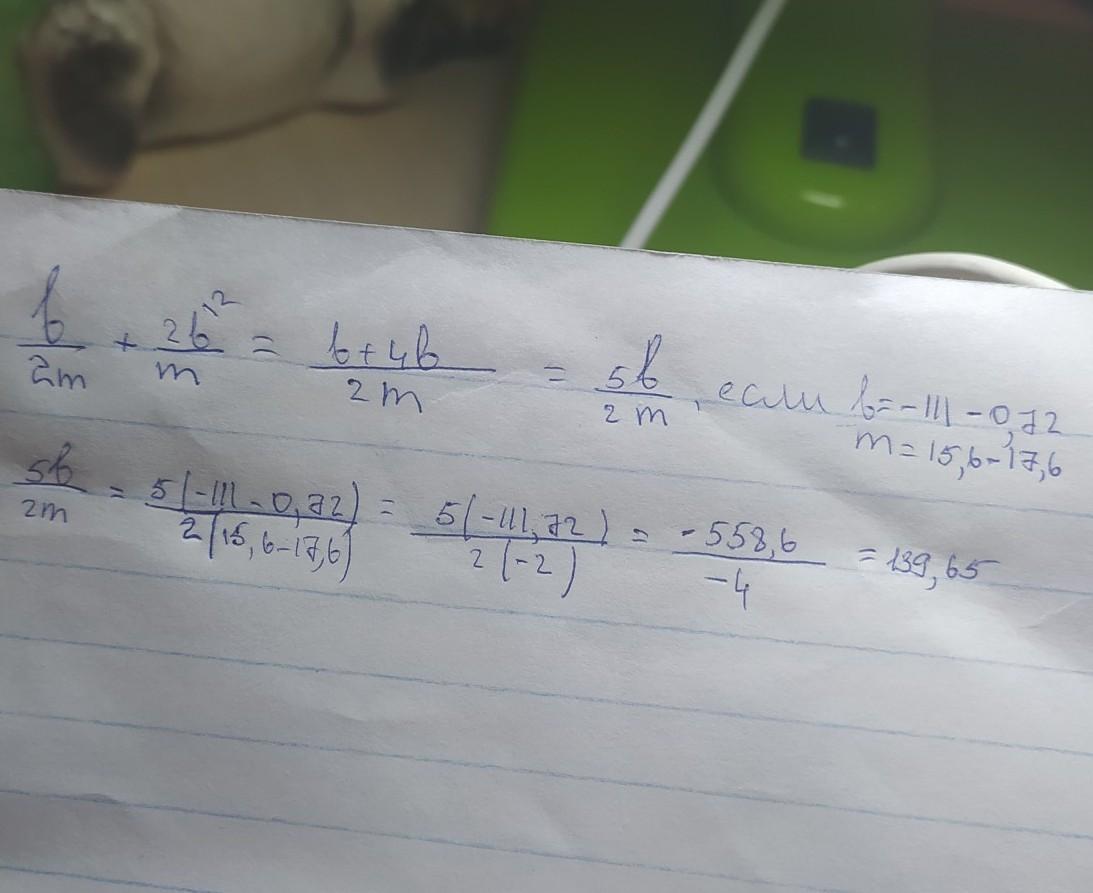 b/2m + 2b^{\2}/m = b+4b/2m = 5b/2m, если b=-111-0,72
m=15,6-17,6
5b/2m = 5(-111-0,72)/2(15,6-17,6) = 5(-111,72)/2(-2) = -558,6/-4 = 139,65